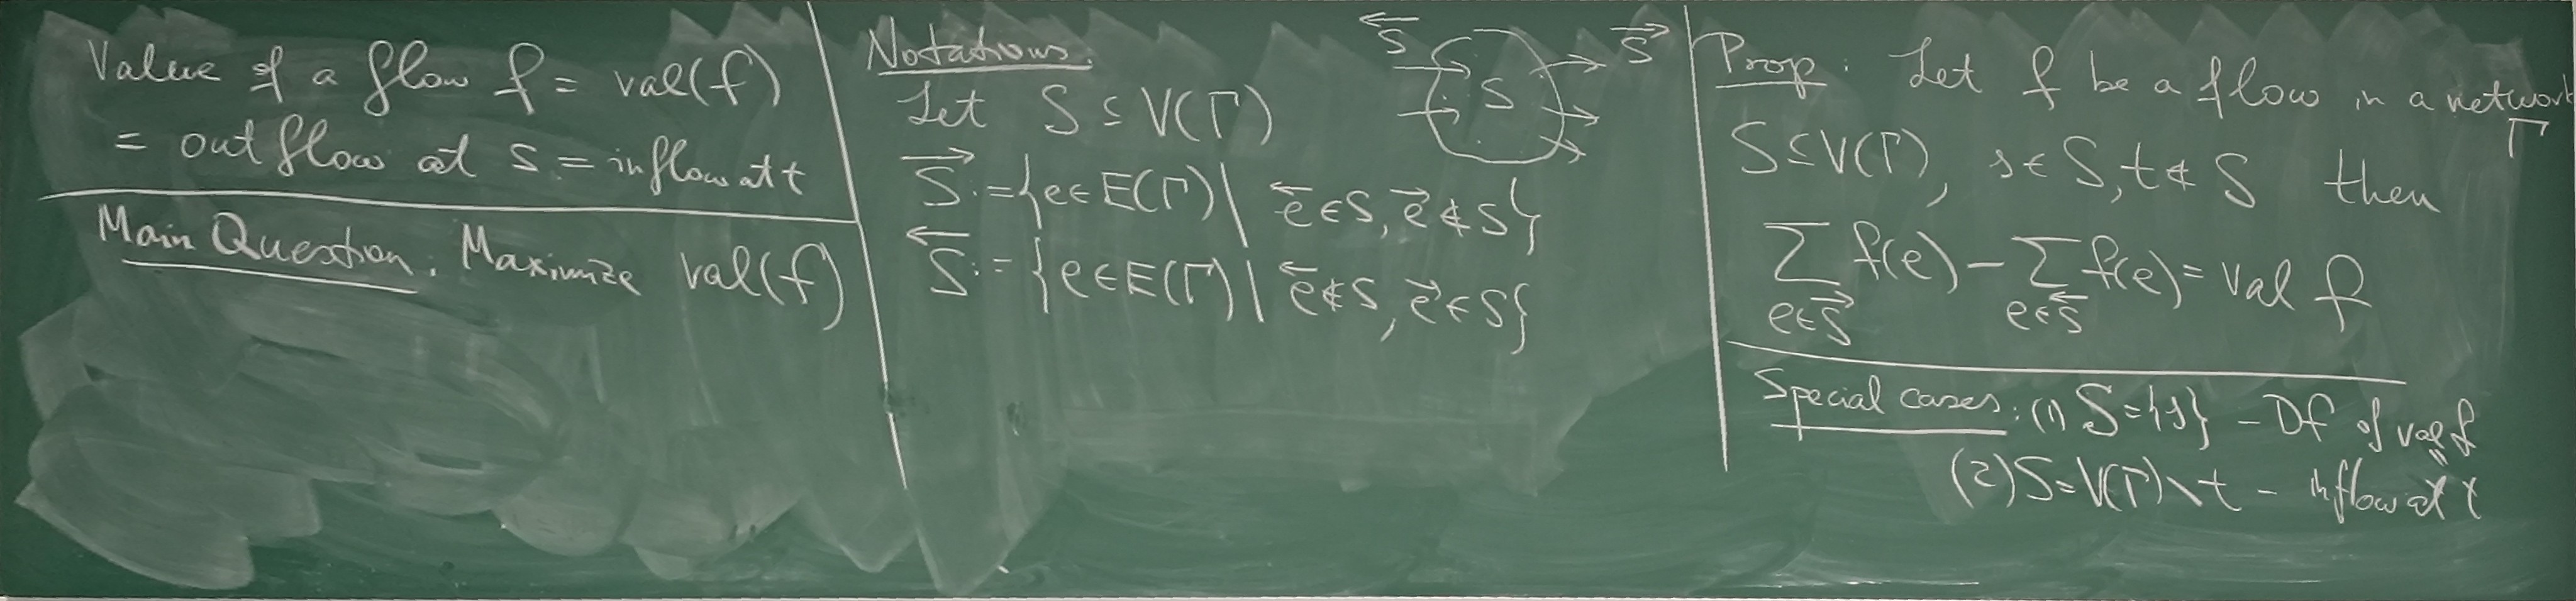 Value of a flow f = val(f)
= outflow at s = inflow at t
Main Question. Maximize val(f)
Notations.
Let S ⊆ V(Γ)
S⃗ := {e ∈ E(Γ) | e⃖ ∈ S, e⃗ ∉ S}
S⃖ := {e ∈ E(Γ) | e⃖ ∉ S, e⃗ ∈ S}
S⃖ S S⃗
Prop. Let f be a flow in a network
Γ
S ⊆ V(Γ), s ∈ S, t ∉ S then
∑ f(e) - ∑ f(e) = val f
e∈S⃗ e∈S⃖
Special cases: (1) S = {s} - Df of val f
"
(2) S = V(Γ) \ t - inflow at t